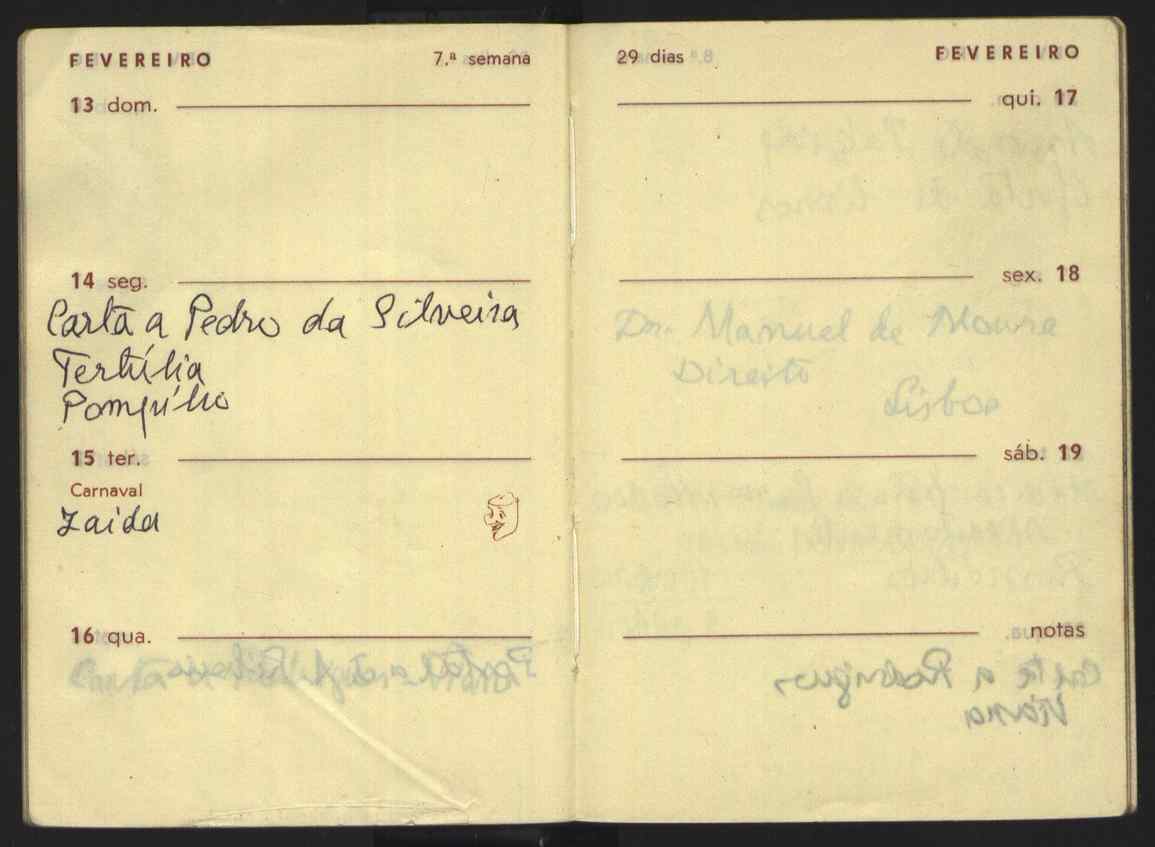 FEVEREIRO 7.ª semana
13 dom.
14 seg.
Carta a Pedro da Silveira
Tertúlia
Pompílio
15 ter.
Carnaval
Zaida
16 qua.
29 dias FEVEREIRO
qui. 17
sex. 18
Dr. Manuel de Moura
Direito
Lisboa
sáb. 19
notas
Carta a Rodrigues
Viana